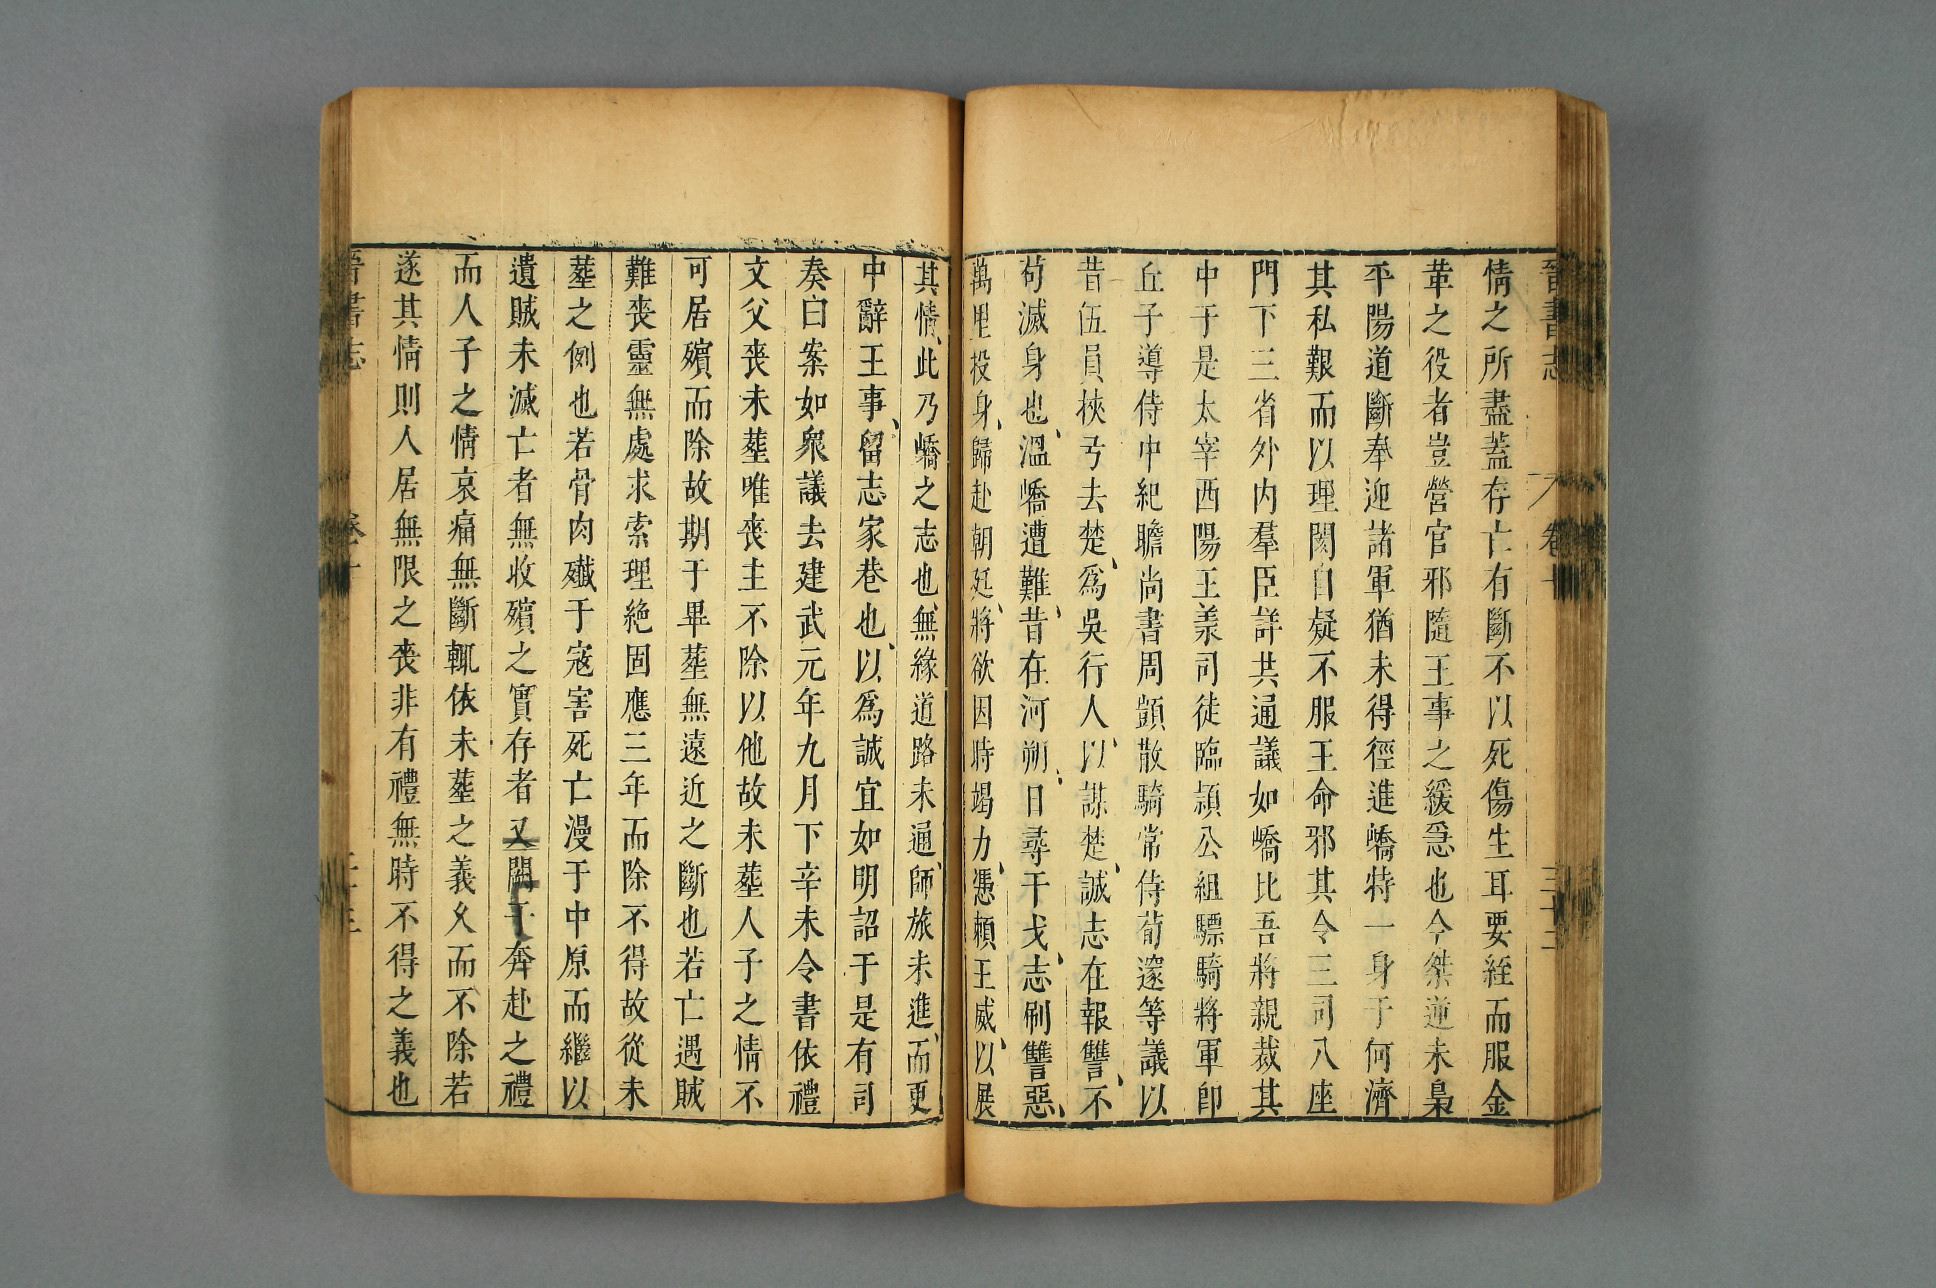 晉書志 卷十 三十二
情之所盡蓋存亡有斷不以死傷生耳要絰而服金
革之役者豈營官邪隨王事之緩急也今桀逆未梟
平陽道斷奉迎諸軍猶未得徑進嶠特一身于何濟
其私艱而以理閡自疑不服王命邪其令三司八座
門下三省外內羣臣詳共通議如嶠比吾將親裁其
中于是太宰西陽王羕司徒臨潁公組驃騎將軍卽
丘子導侍中紀瞻尚書周顗散騎常侍荀邃等議以
昔伍員挾弓去楚爲吳行人以謀楚誠志在報讐不
苟滅身也溫嶠遭難昔在河朔日尋干戈志刷讐惡
萬里投身歸赴朝廷將欲因時竭力憑賴王威以展
其情此乃嶠之志也無緣道路未通師旅未進而更
中辭王事留志家巷也以爲誠宜如明詔于是有司
奏曰案如衆議去建武元年九月下辛未令書依禮
文父喪未葬唯喪主不除以他故未葬人子之情不
可居殯而除故期于畢葬無遠近之斷也若亡遇賊
難喪靈無處求索理絶固應三年而除不得故從未
葬之例也若骨肉殲于寇害死亡漫于中原而繼以
遺賊未滅亡者無收殯之實存者又闕于奔赴之禮
而人子之情哀痛無斷輒依未葬之義久而不除若
遂其情則人居無限之喪非有禮無時不得之義也
晉書志 卷十